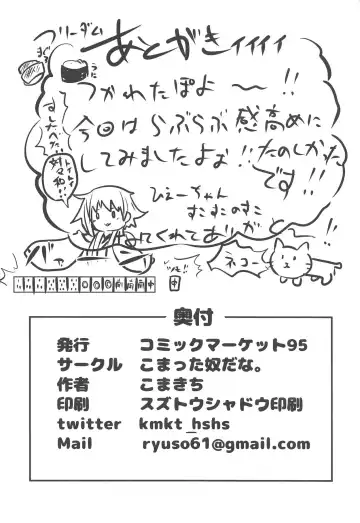 フリーダム
あとがきィィィィ
まぐろ
うに
つかれたぽよ〜!!
今回はらぶらぶ感高めに
してみましたよぉ!!たのしかった
です!!
ひえーちゃん
すこすこのすこ
みてくれてありがと
ネコー
ツモ!!
奥付
発行 コミックマーケット95
サークル こまった奴だな。
作者 こまきち
印刷 スズトウシャドウ印刷
twitter kmkt_hshs
Mail ryuso61@gmail.com